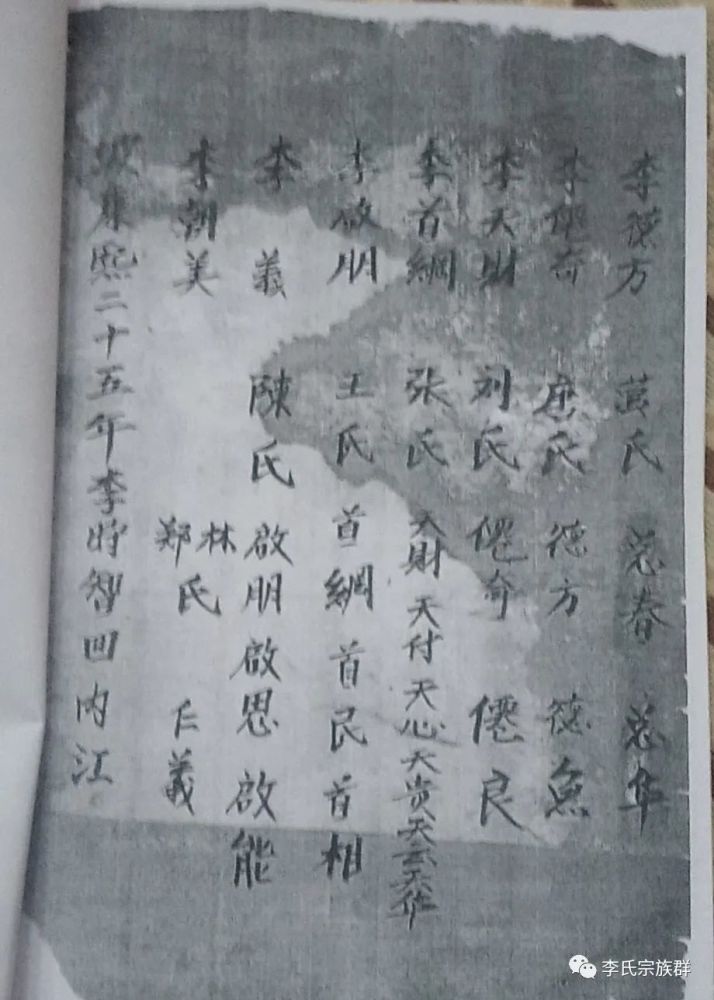 李德方 黄氏 总春 总华
李僊奇 氏 德方 德鱼
李天財 刘氏 僊奇 僊良
李首綱 张氏 天財 天付 天心 天贵 天云 天华
李啟朋 王氏 首綱 首民 首相
李義 陳氏 啟朋 啟思 啟能
李朝美 林郑氏 仁義
康熙二十五年李时智回内江
李氏宗族群